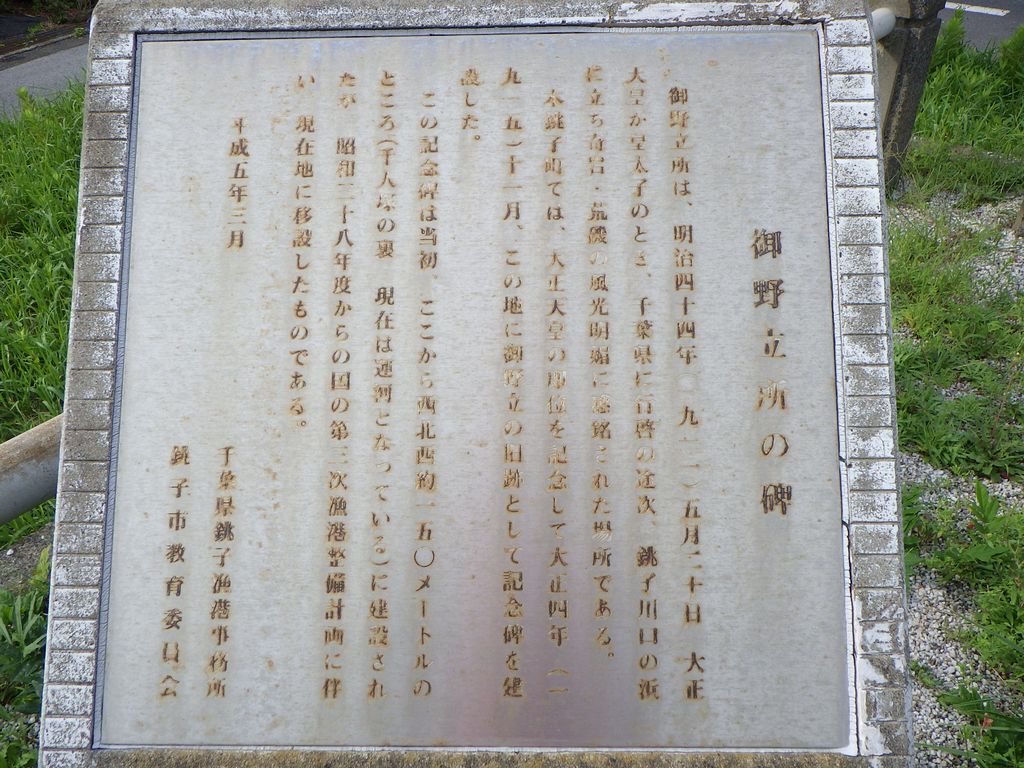 御野立所の碑
御野立所は、明治四十四年(一九一一)五月二十日 大正
天皇が皇太子のとき、千葉県に行啓の途次、銚子川口の浜
に立ち奇岩・荒磯の風光明媚に感銘された場所である。
本銚子町では、大正天皇の即位を記念して大正四年(一
九一五)十一月、この地に御野立の旧跡として記念碑を建
設した。
この記念碑は当初、ここから西北西約一五〇メートルの
ところ(千人塚の裏 現在は運河となっている)に建設され
たが 昭和二十八年度からの国の第三次漁港整備計画に伴
い 現在地に移設したものである。
平成五年三月
千葉県銚子漁港事務所
銚子市教育委員会